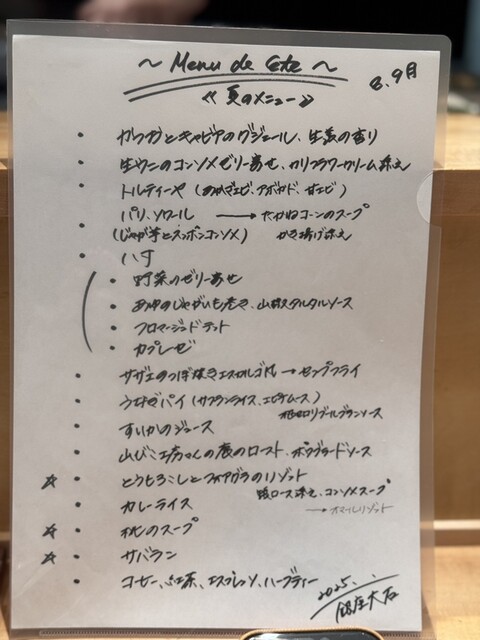 ~ Menu de Ete ~
8.9月
≪夏のメニュー≫
・ガスエビとキャビアのグジェール、生姜の香り
・生ウニのコンソメゼリー寄せ、カリフラワークリーム添え
・トルティーヤ (あかざエビ、アボカド、甘エビ)
・パリ・ソワール → たかねコーンのスープ
(じゃが芋とスッポンコンソメ) かき揚げ添え
・ハす
・野菜のゼリー寄せ
・あゆのじゃがいも巻き、山椒タルタルソース
・フロマージュドテット
・カプレーゼ
・サザエのつぼ焼きエスカルゴ風 → センプフライ
・うなぎパイ (サフランライス、エビムース)
桃セロリブールブランソース
・すいかのジュース
・山びこ工坊さんの鹿のロースト、ポワブラードソース
☆ ・とうもろこしとフォアグラのリゾット
・カレーライス
豚ロース添え、コンソメスープ
→オマールリゾット
☆ ・桃のスープ
☆ ・サバラン
・コーヒー、紅茶、エスプレッソ、ハーブティー
2025.
銀座大石